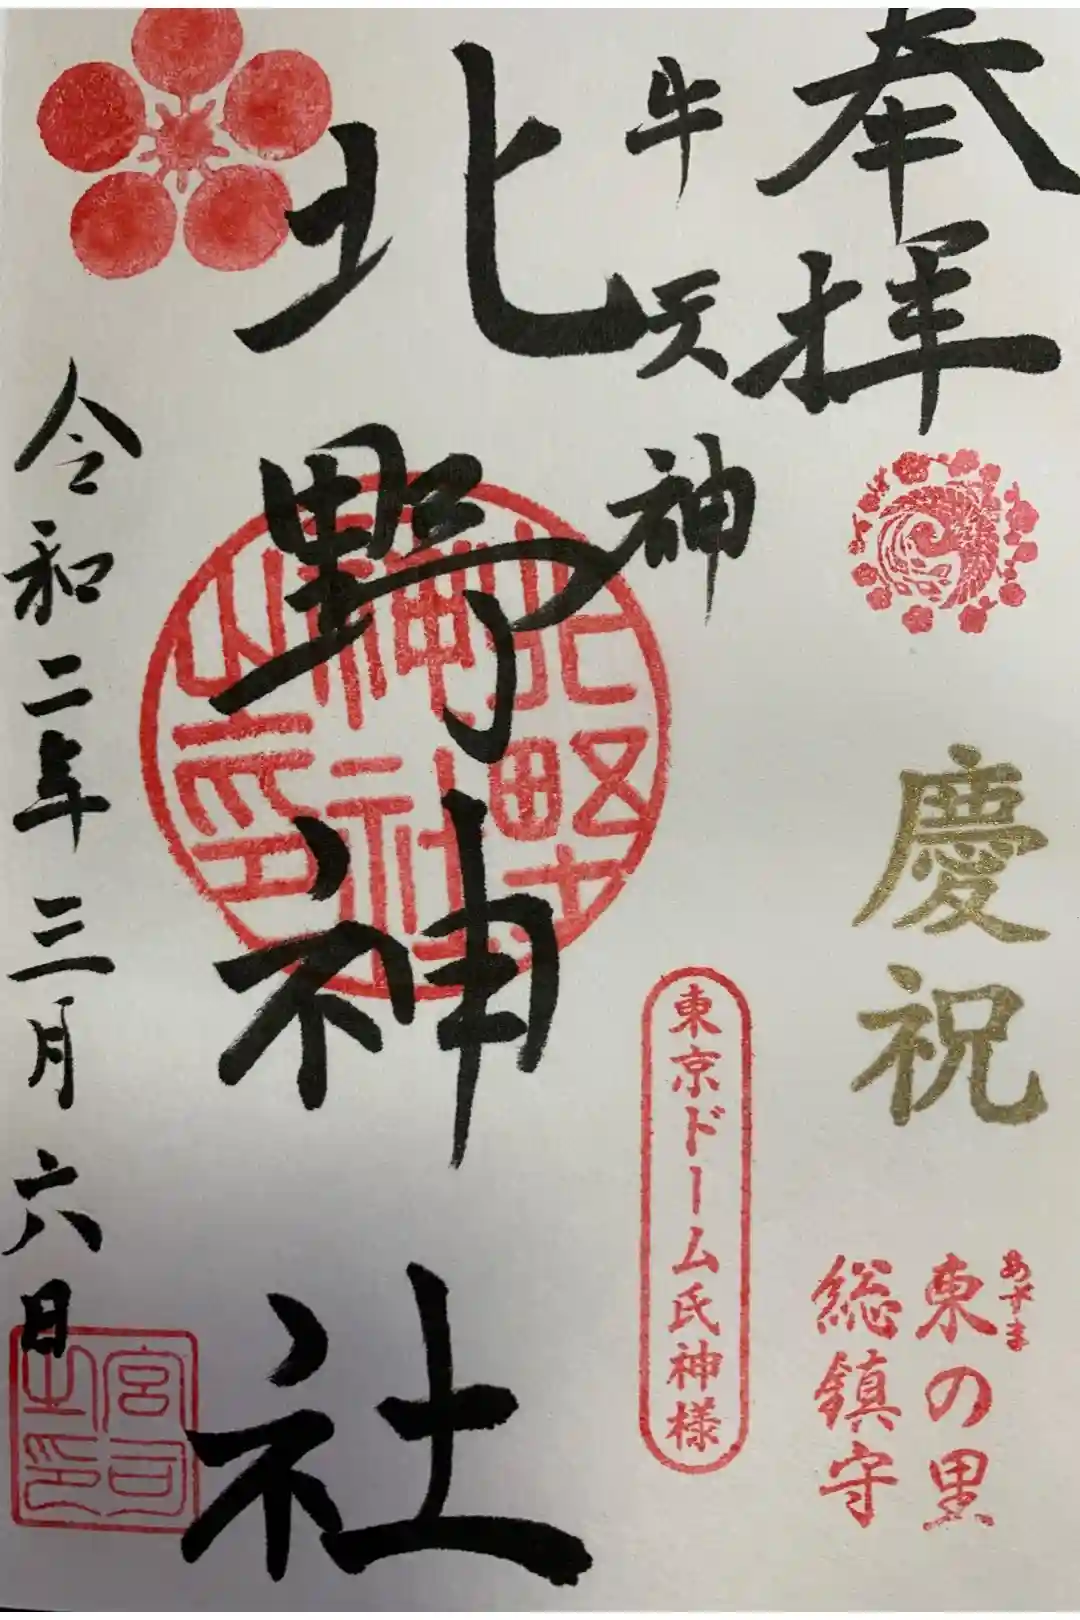 奉拝
慶祝
あずま
東の里
総鎮守
牛天神
東京ドーム氏神様
北野神社
北野
神社
之印
令和二年三月六日
宮司
之印